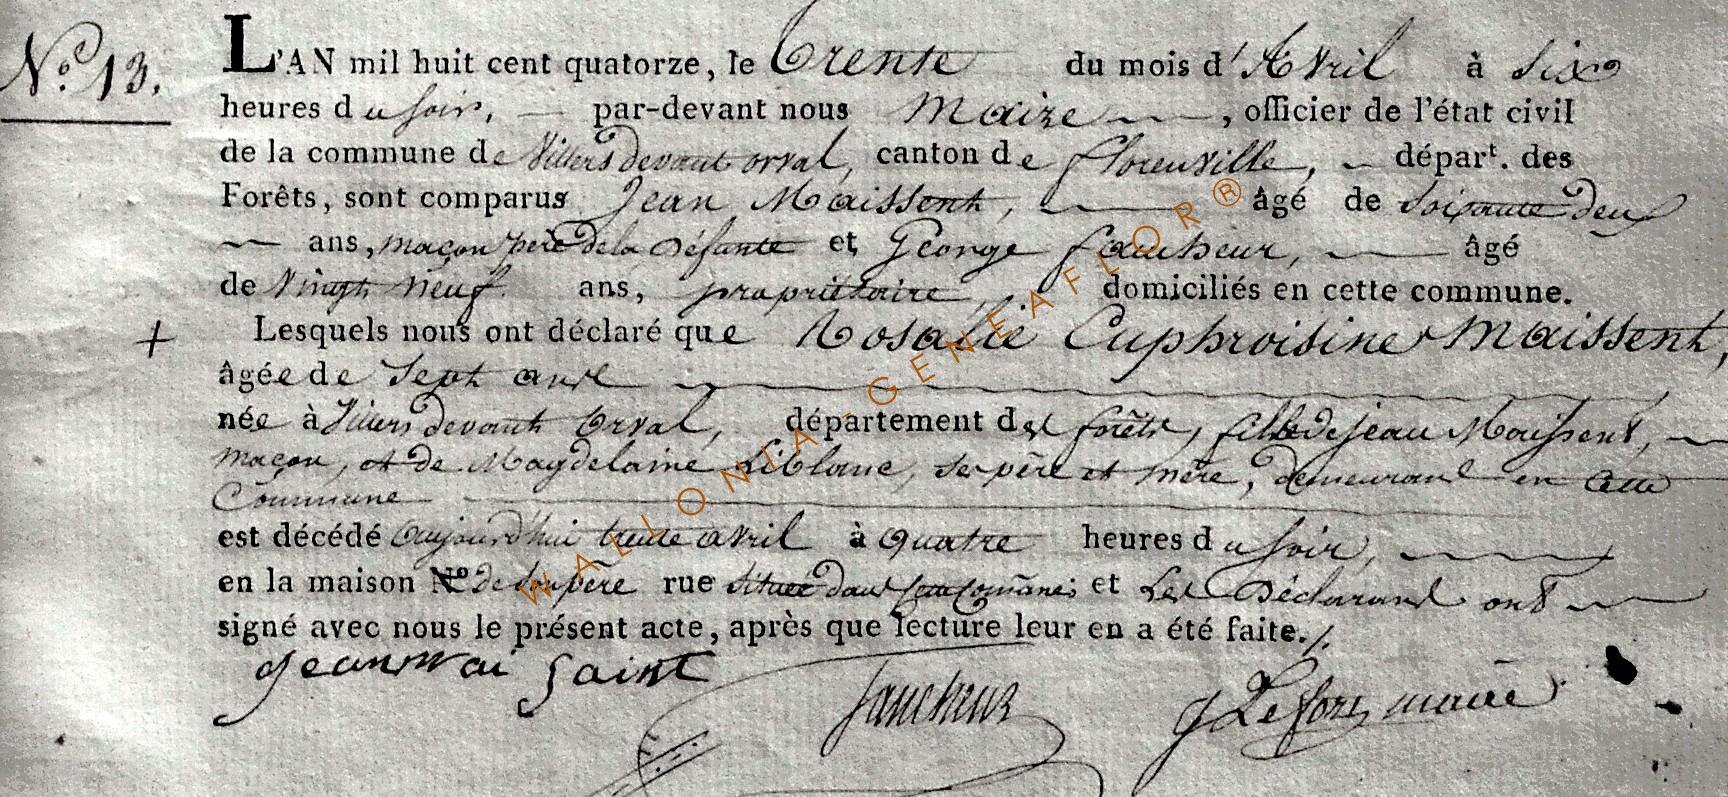 N.o 13.
L'AN mil huit cent quatorze, le trente du mois d'Avril à Six
heures du soir, par-devant nous Maire, officier de l'état civil
de la commune de Villers devant orval, canton de florenville, départ. des
Forêts, sont comparus Jean Maissent, âgé de Soixante deux
ans, maçon père de la défunte et George faucheur, âgé
de Vingt neuf ans, propriétaire, domiciliés en cette commune.
+ Lesquels nous ont déclaré que Rosalie Euphroisine Maissent,
âgée de Sept ans
née à Villers devant Orval, département des forêts, fille de jean Maissent,
maçon, et de Magdelaine Leblanc, ses père et mère, demeurant en cette
Commune
est décédé aujourd'hui trente avril à quatre heures du soir,
en la maison No de son père rue située dans cette et Les Déclarans ont
signé avec nous le présent acte, après que lecture leur en a été faite./.
jean mai saint faucheur J Lefort maire
WALLONIA-GENEAFLOR®